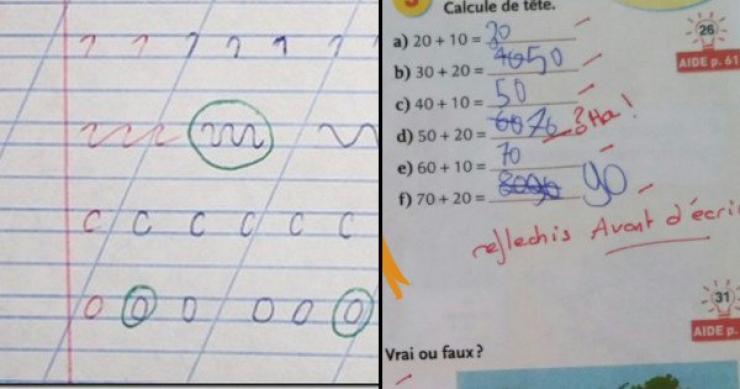 c c c c c c
o o o o o o
Calcule de tête.
26
AIDE p. 61
a) 20 + 10 = 30
b) 30 + 20 = 40 50
c) 40 + 10 = 50
d) 50 + 20 = 60
e) 60 + 10 = 70
f) 70 + 20 = 90
reflechis Avant d'écri
31
AIDE p.
Vrai ou faux ?